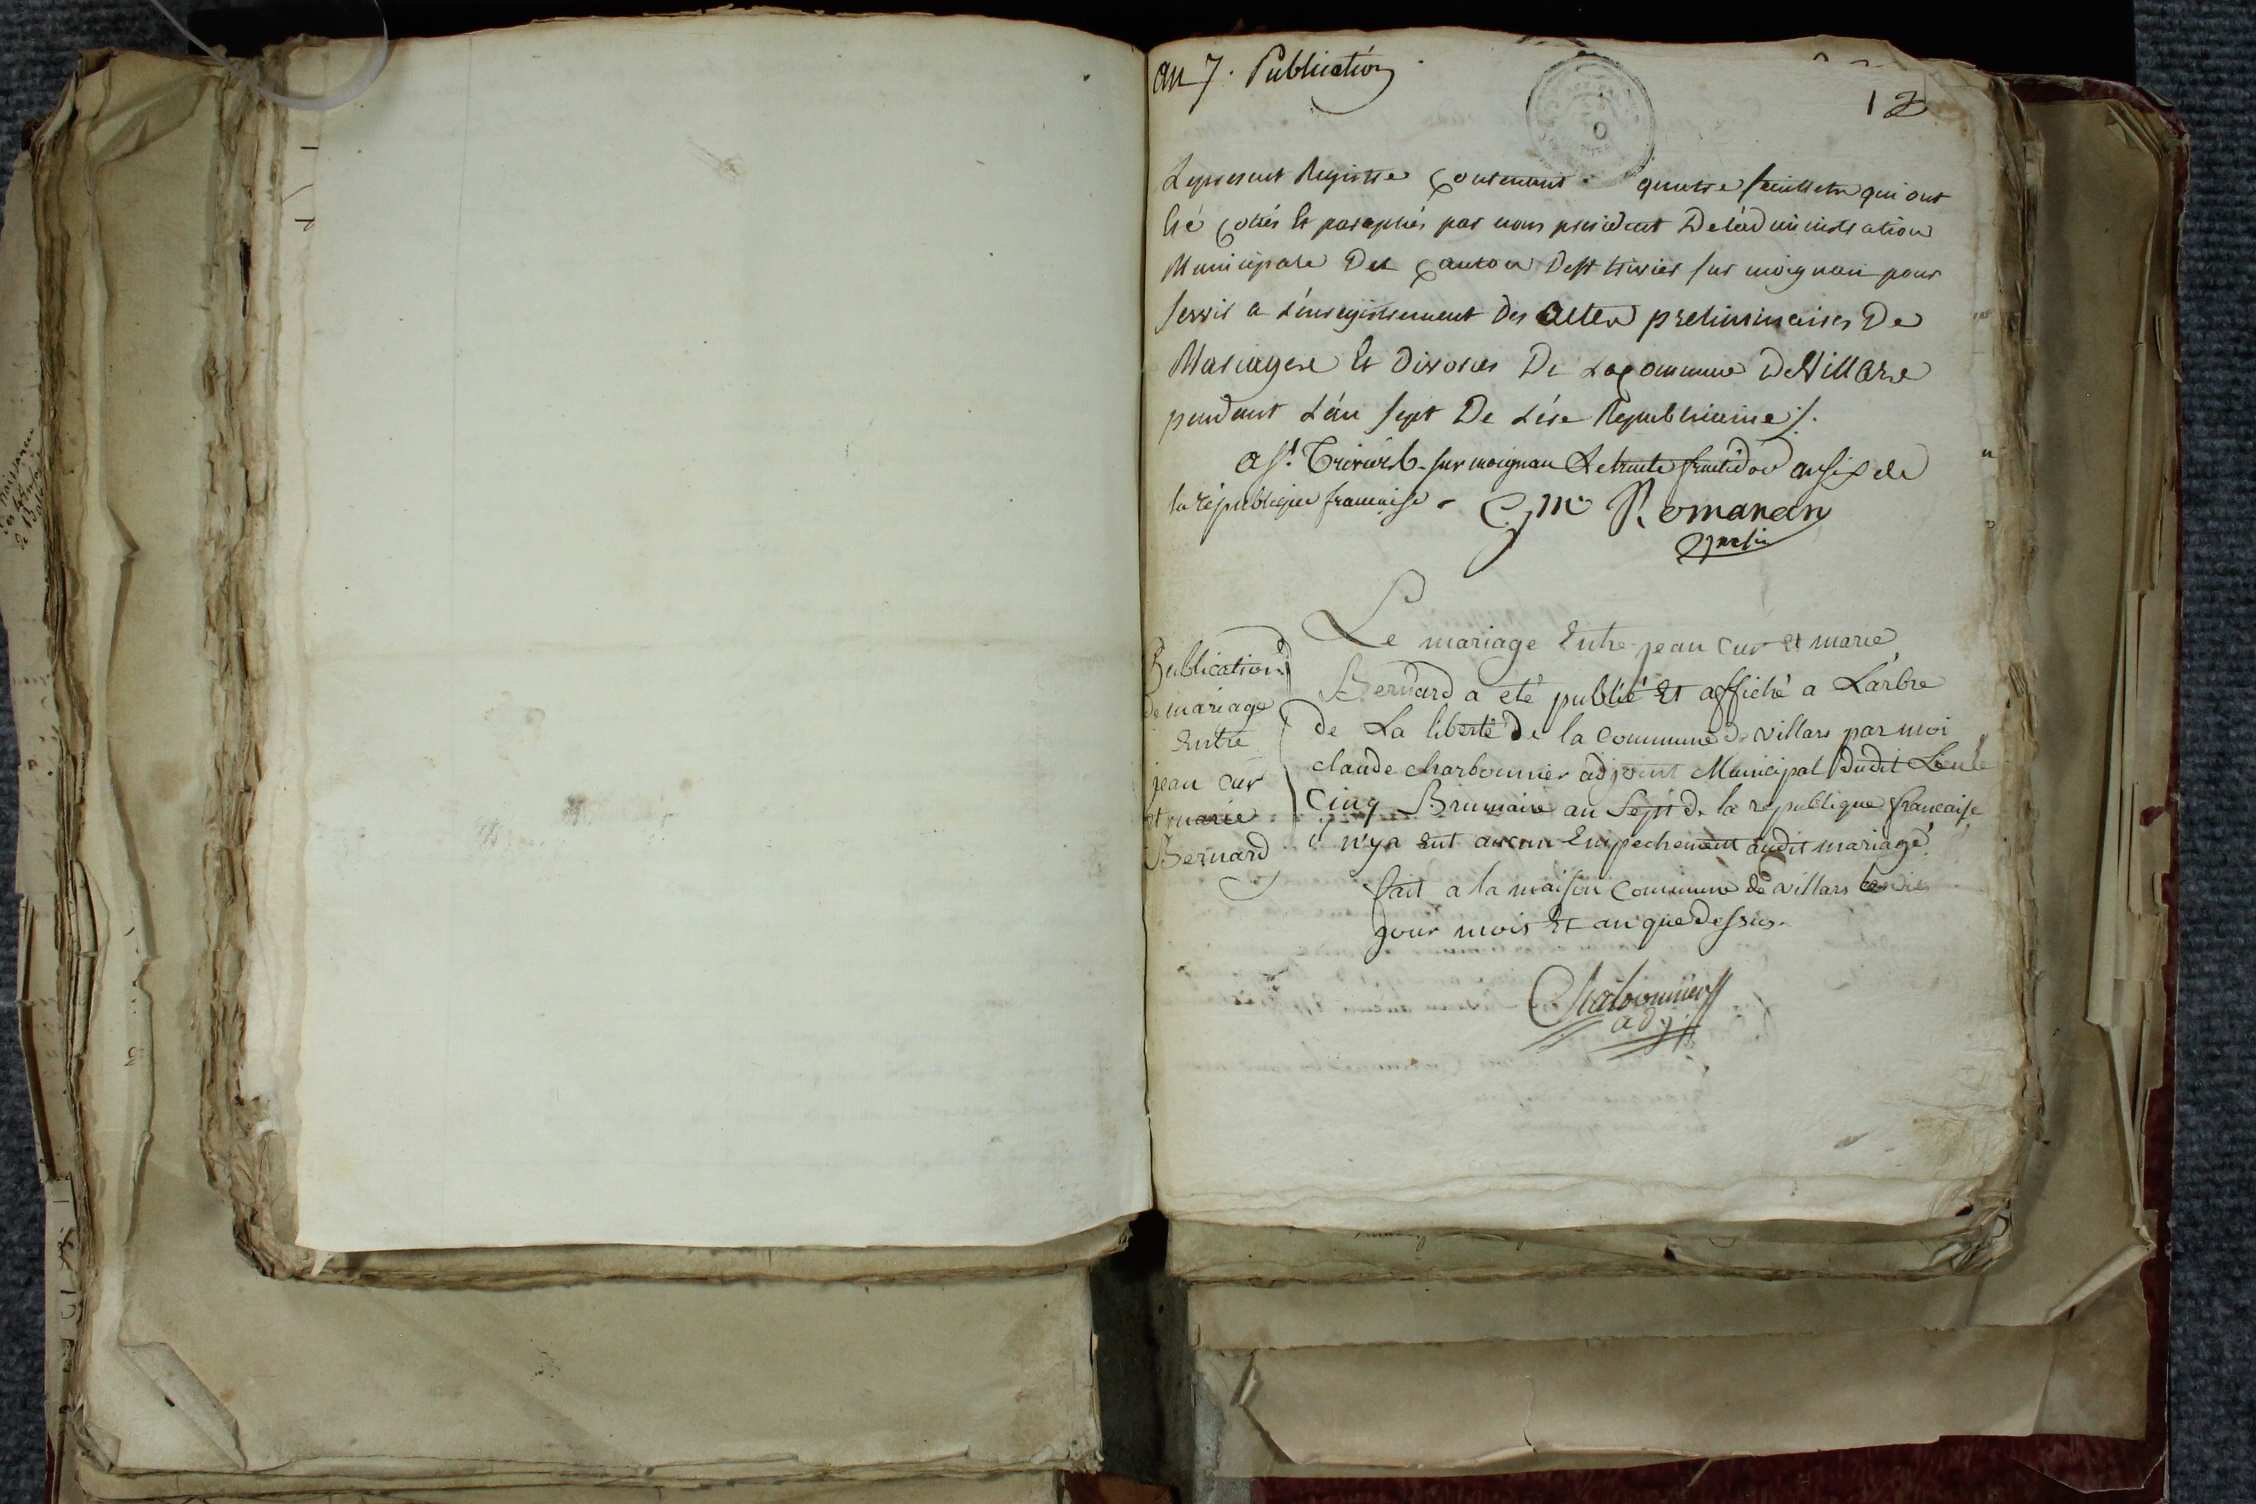 an 7. Publication
12
Le present Registre Contenant quatre feuillets qui ont
Eté Cottés Et paraphés par nous president De l'administration
Municipale Du Canton De St trivier sur moignan pour
servir a L'enregistrement des Actes preliminaires De
Mariages Et Divorces De La Commune De Villars
pendant L'an sept De L'ère Republicaine ./.
a St. Trivier sur moignan Le trente fructidor an six de
la république française - C. m. Romanan
Publication
de mariage
Entre
jean Cur
et marie
Bernard
Le mariage Entre jean Cur et marie
Bernard a eté publié Et affiché a L'arbre
de La liberté De la Commune de villars par moi
claude charbonnier adjoint Municipal dudit Lieu le
Cinq Brumaire an Sept De la republique francaise
il n'y a Eut aucun Empechement audit mariage
fait a la maison Commune de villars les dits
jour mois Et an que dessus.
Charbonnier
adj.